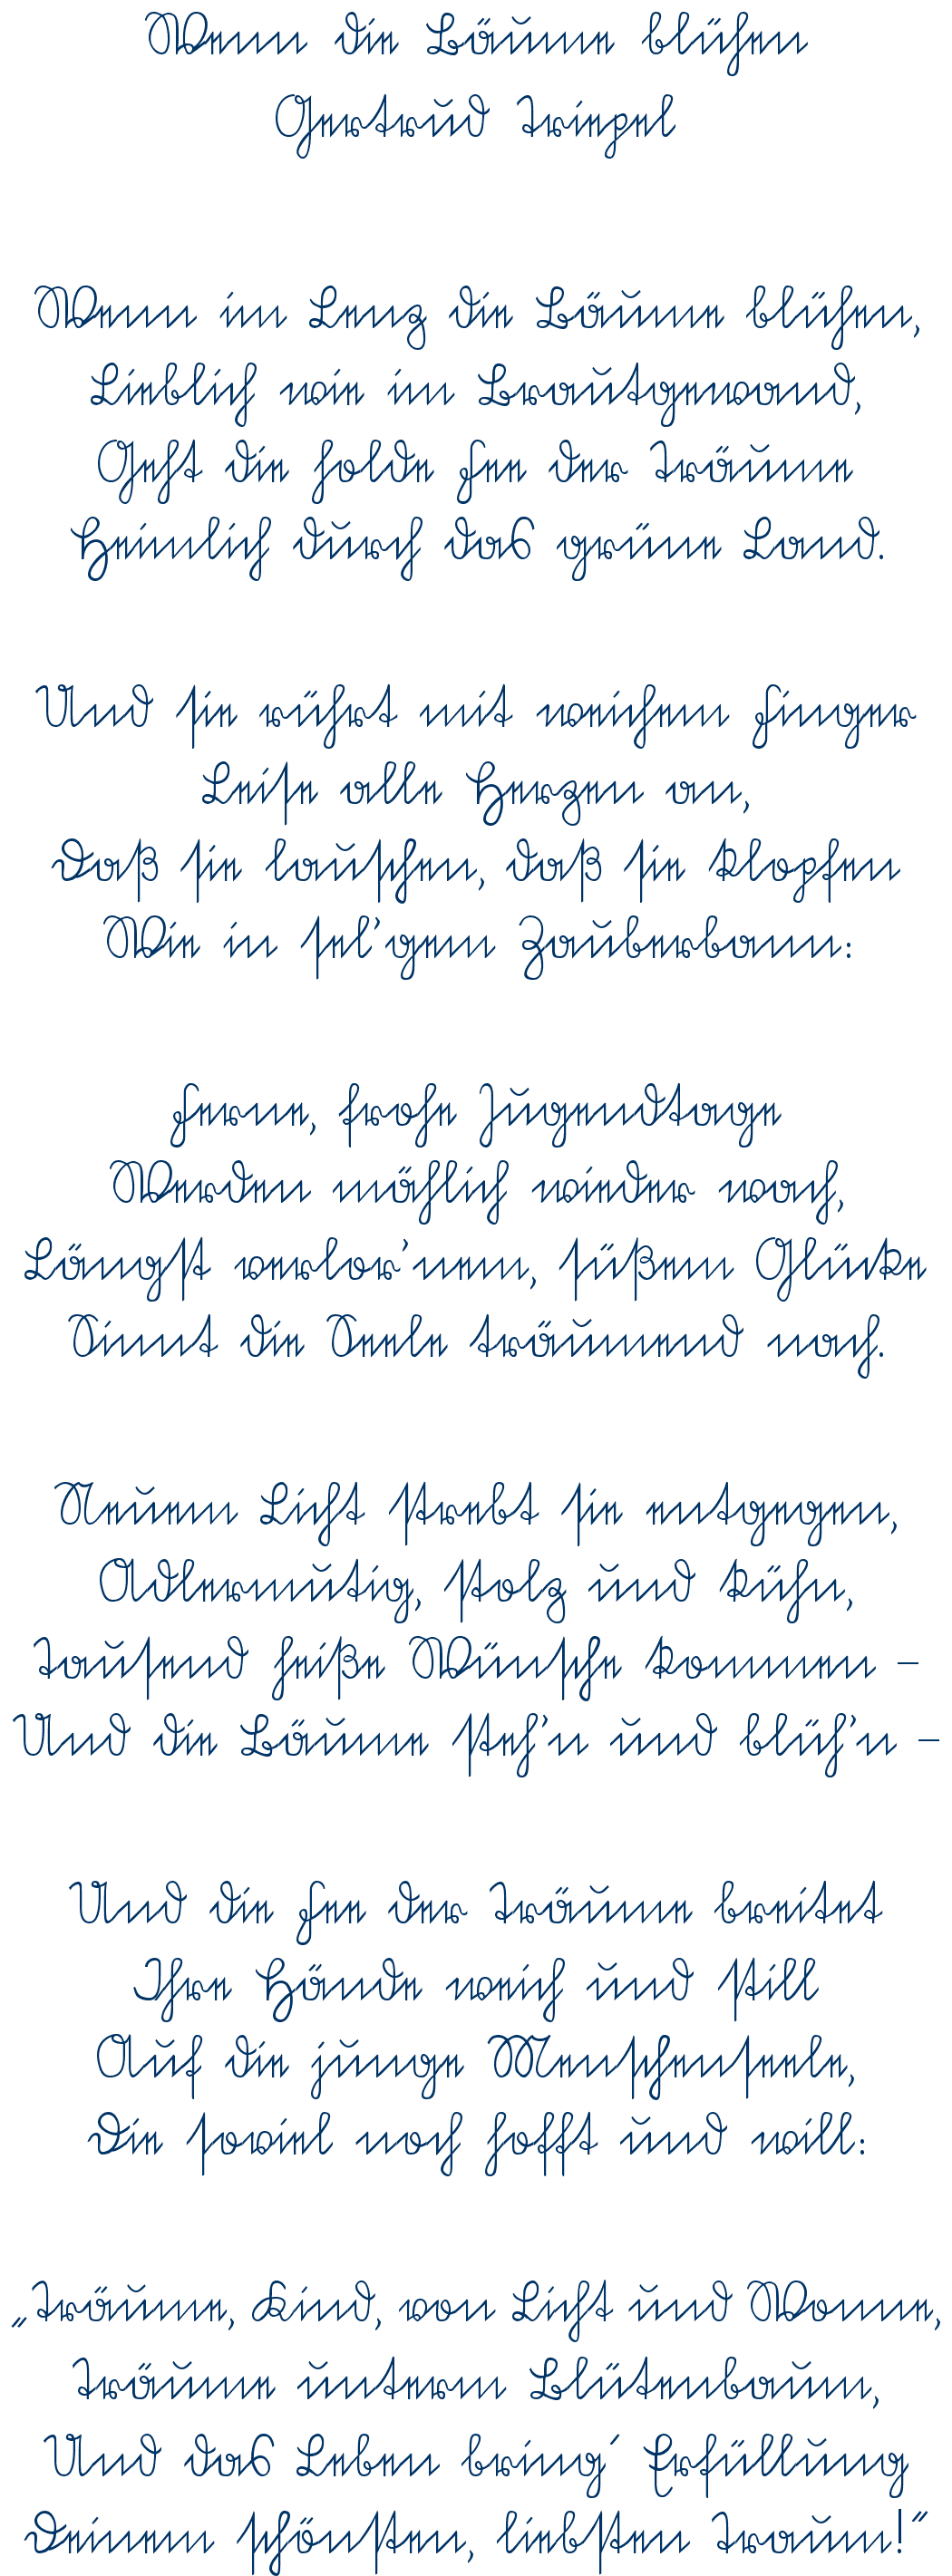 Wenn die Bäume blühen
Gertrud Triepel
Wenn im Lenz die Bäume blühen,
Lieblich wie im Brautgewand,
Geht die holde Fee der Träume
Heimlich durch das grüne Land.
Und sie rührt mit weichem Finger
Leise alle Herzen an,
Daß sie lauschen, daß sie klopfen
Wie in sel'gem Zauberbann:
Ferne, frohe Jugendtage
Werden mählich wieder wach,
Längst verlor'nem, süßem Glücke
Sinnt die Seele träumend nach.
Neuem Licht strebt sie entgegen,
Adlermutig, stolz und kühn,
Tausend heiße Wünsche kommen –
Und die Bäume steh'n und blüh'n –
Und die Fee der Träume breitet
Ihre Hände weich und still
Auf die junge Menschenseele,
Die soviel noch hofft und will:
„Träume, Kind, von Licht und Wonne,
Träume unterm Blütenbaum,
Und das Leben bring´ Erfüllung
Deinem schönsten, liebsten Traum!“